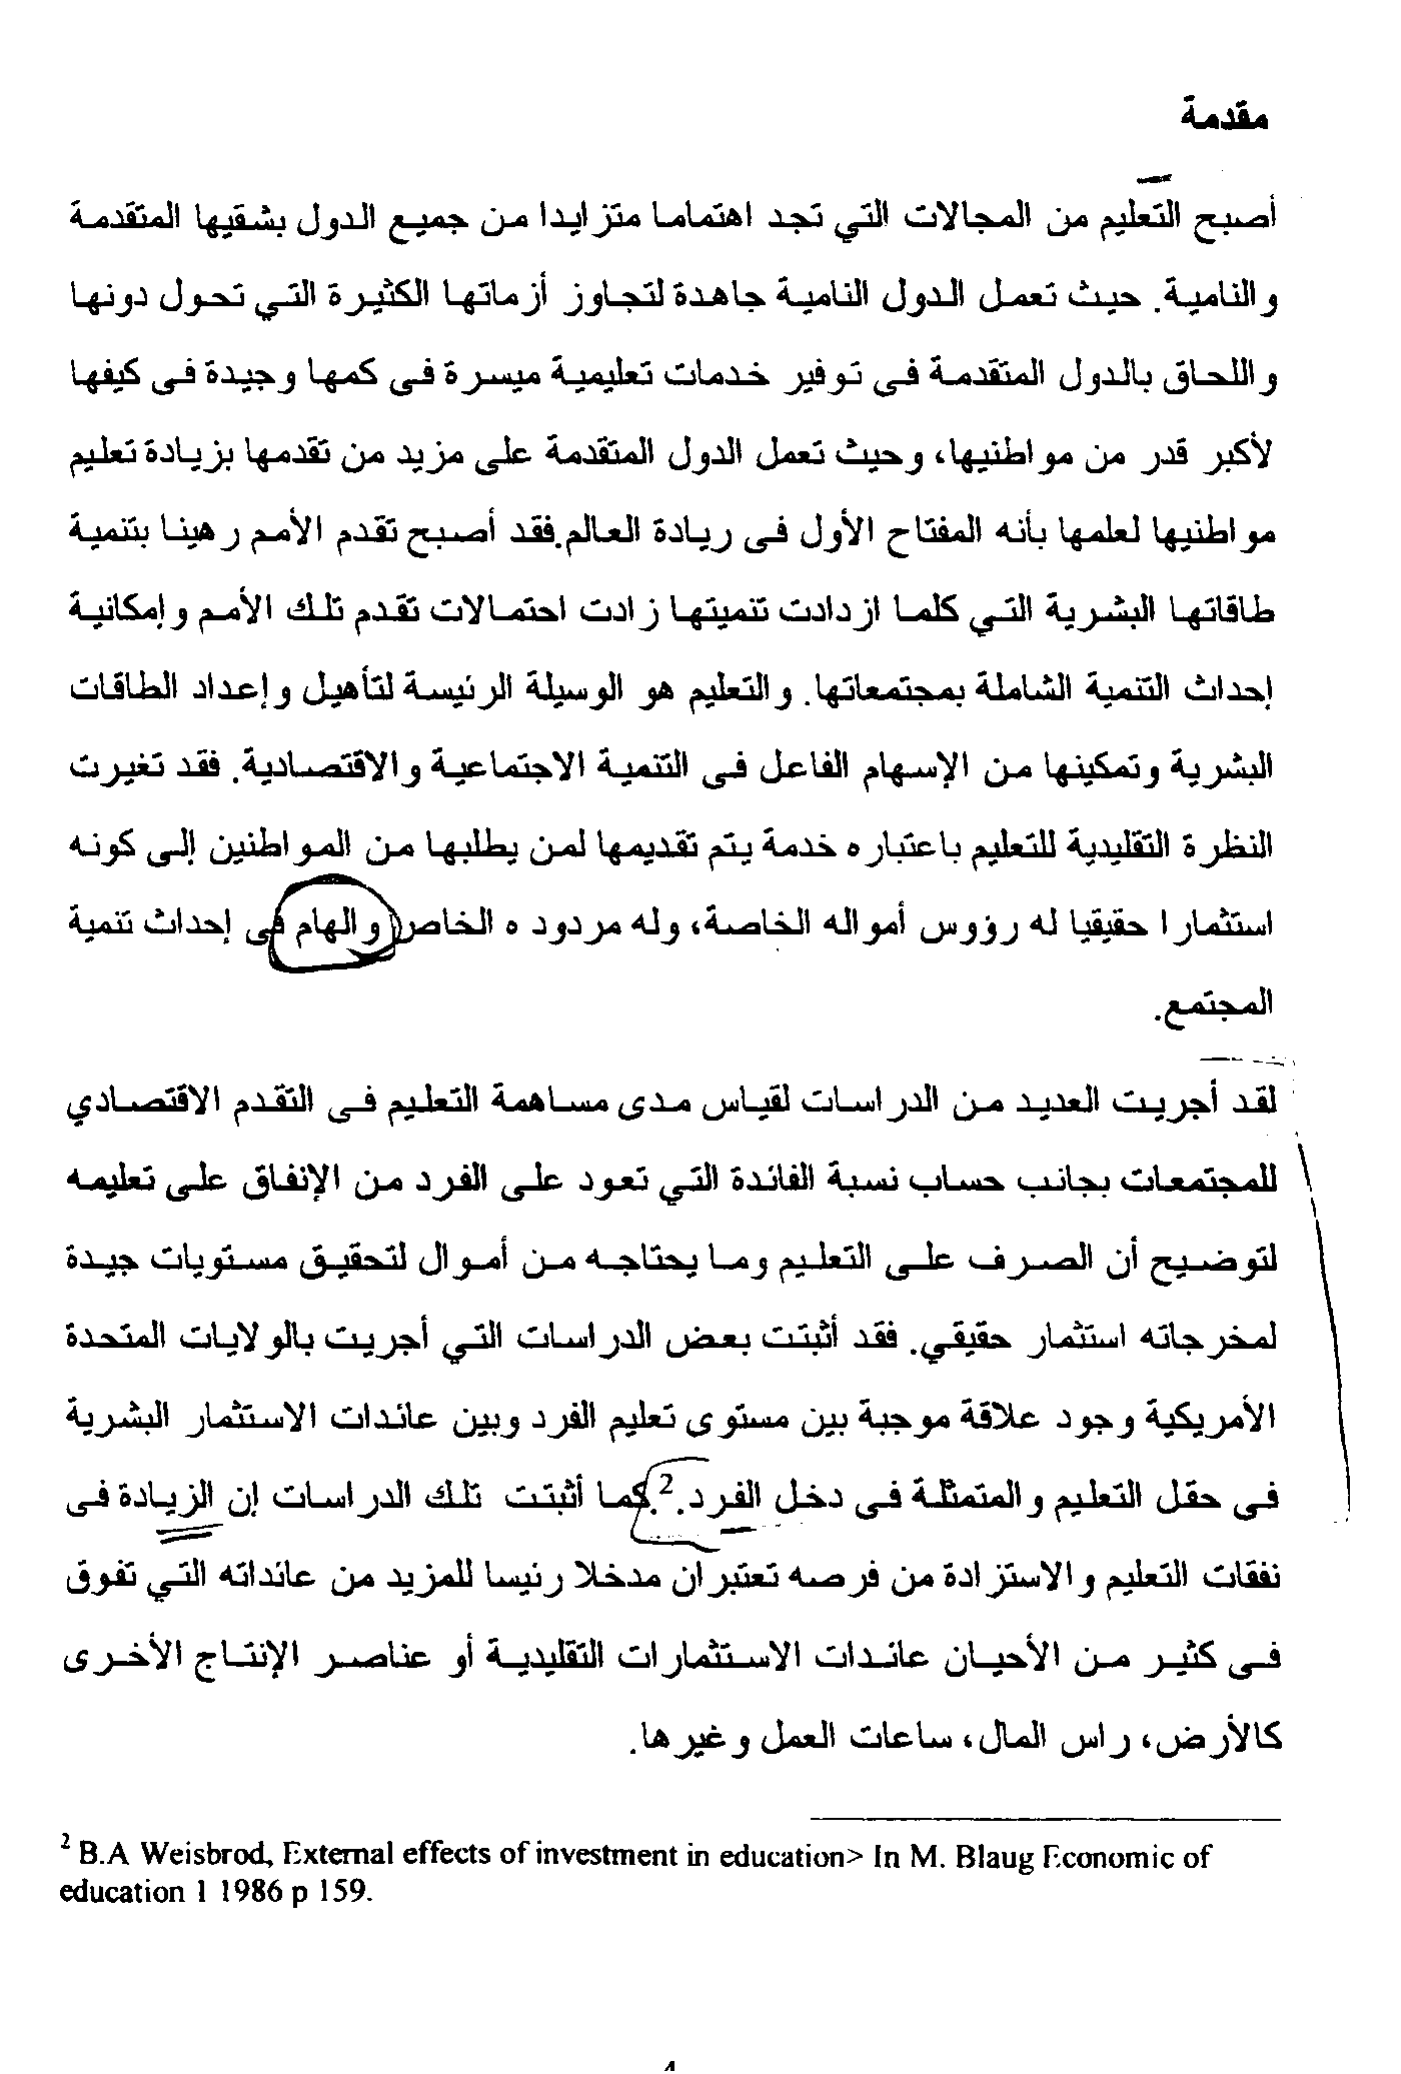 مقدمة
أصبح التعليم من المجالات التي تجد اهتماما متزايدا من جميع الدول بشقيها المتقدمة
والنامية. حيث تعمل الدول النامية جاهدة لتجاوز أزماتها الكثيرة التي تحول دونها
واللحاق بالدول المتقدمة فى توفير خدمات تعليمية ميسرة فى كمها وجيدة فى كيفها
لأكبر قدر من مواطنيها، وحيث تعمل الدول المتقدمة على مزيد من تقدمها بزيادة تعليم
مواطنيها لعلمها بأنه المفتاح الأول فى ريادة العالم.فقد أصبح تقدم الأمم رهينا بتنمية
طاقاتها البشرية التي كلما ازدادت تنميتها زادت احتمالات تقدم تلك الأمم وإمكانية
إحداث التنمية الشاملة بمجتمعاتها. والتعليم هو الوسيلة الرئيسة لتأهيل وإعداد الطاقات
البشرية وتمكينها من الإسهام الفاعل فى التنمية الاجتماعية والاقتصادية. فقد تغيرت
النظرة التقليدية للتعليم باعتباره خدمة يتم تقديمها لمن يطلبها من المواطنين إلى كونه
استثمارا حقيقيا له رؤوس أمواله الخاصة، وله مردوده الخاص والهام فى إحداث تنمية
المجتمع.
لقد أجريت العديد من الدراسات لقياس مدى مساهمة التعليم فى التقدم الاقتصادي
للمجتمعات بجانب حساب نسبة الفائدة التي تعود على الفرد من الإنفاق على تعليمه
لتوضيح أن الصرف على التعليم وما يحتاجه من أموال لتحقيق مستويات جيدة
لمخرجاته استثمار حقيقي. فقد أثبتت بعض الدراسات التي أجريت بالولايات المتحدة
الأمريكية وجود علاقة موجبة بين مستوى تعليم الفرد وبين عائدات الاستثمار البشرية
فى حقل التعليم والمتمثلة فى دخل الفرد.2.كما أثبتت تلك الدراسات إن الزيادة فى
نفقات التعليم والاستزادة من فرصه تعتبران مدخلا رئيسا للمزيد من عائداته التي تفوق
فى كثير من الأحيان عائدات الاستثمارات التقليدية أو عناصر الإنتاج الأخرى
كالأرض، راس المال، ساعات العمل وغيرها.
2 B.A Weisbrod, External effects of investment in education> In M. Blaug Economic of
education 1 1986 p 159.
4